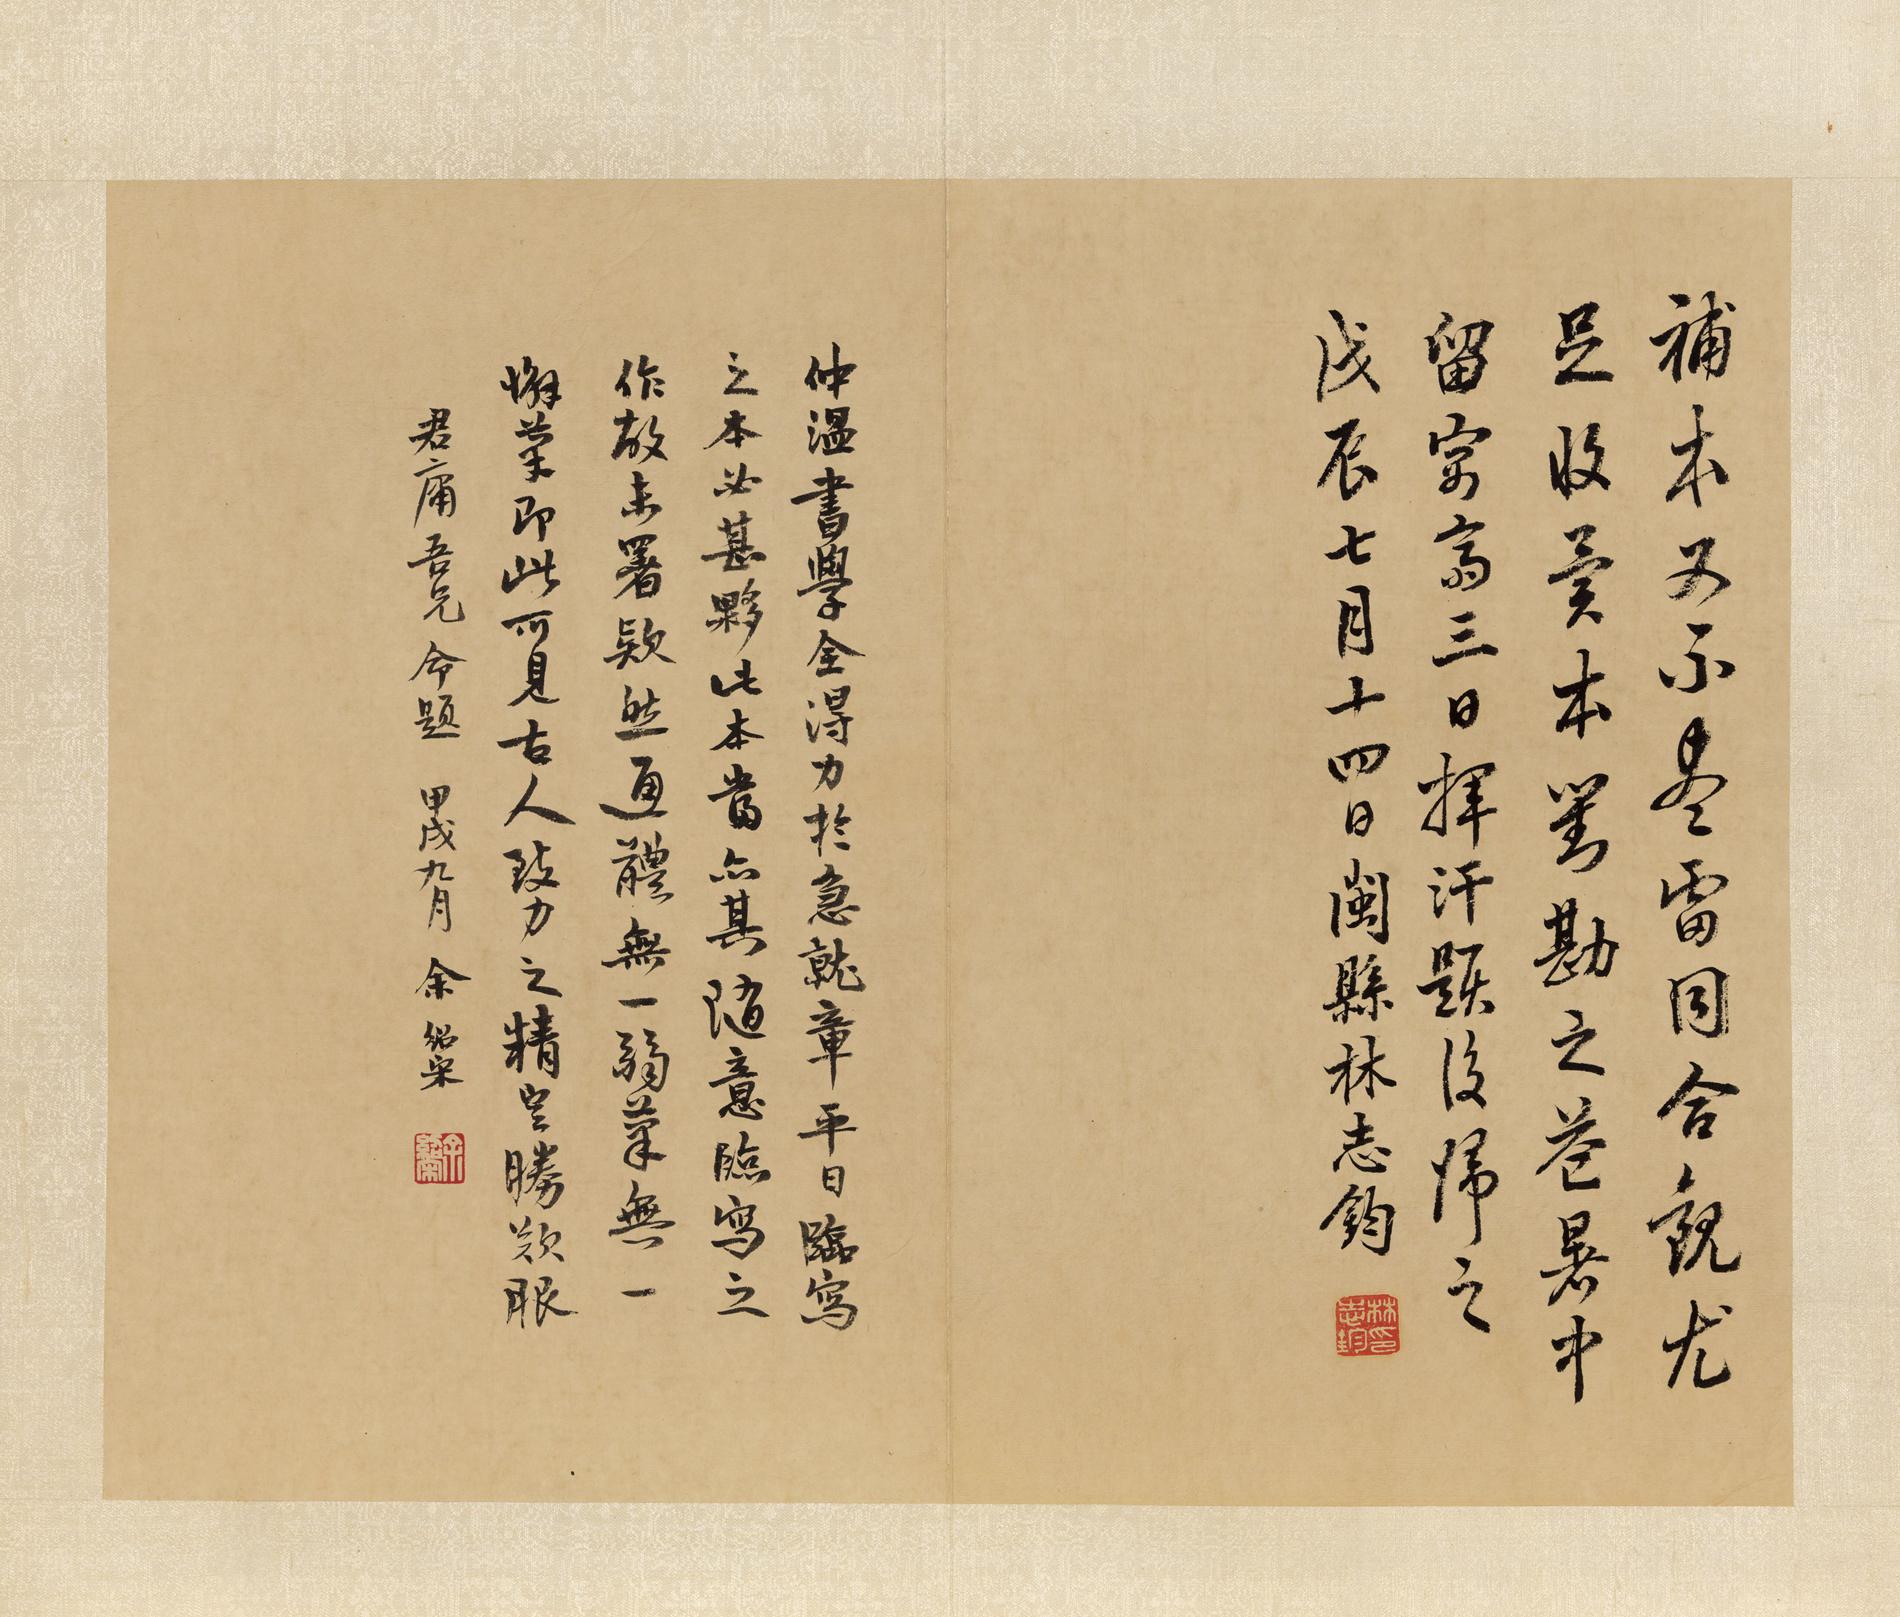 補本又不盡雷同合觀尤
足收賣本對勘之益暑中
留案齋三日揮汗題後歸之
戊辰七月十四日閩縣林志鈞
林志鈞印
仲溫書學全得力於急就章平日臨寫
之本必甚夥此本當亦其隨意臨寫之
作故未署款然通體無一弱筆無一
懈筆即此可見古人致力之精空勝歎眼
君庸吾兄命題 甲戌九月 余紹宋
余紹宋